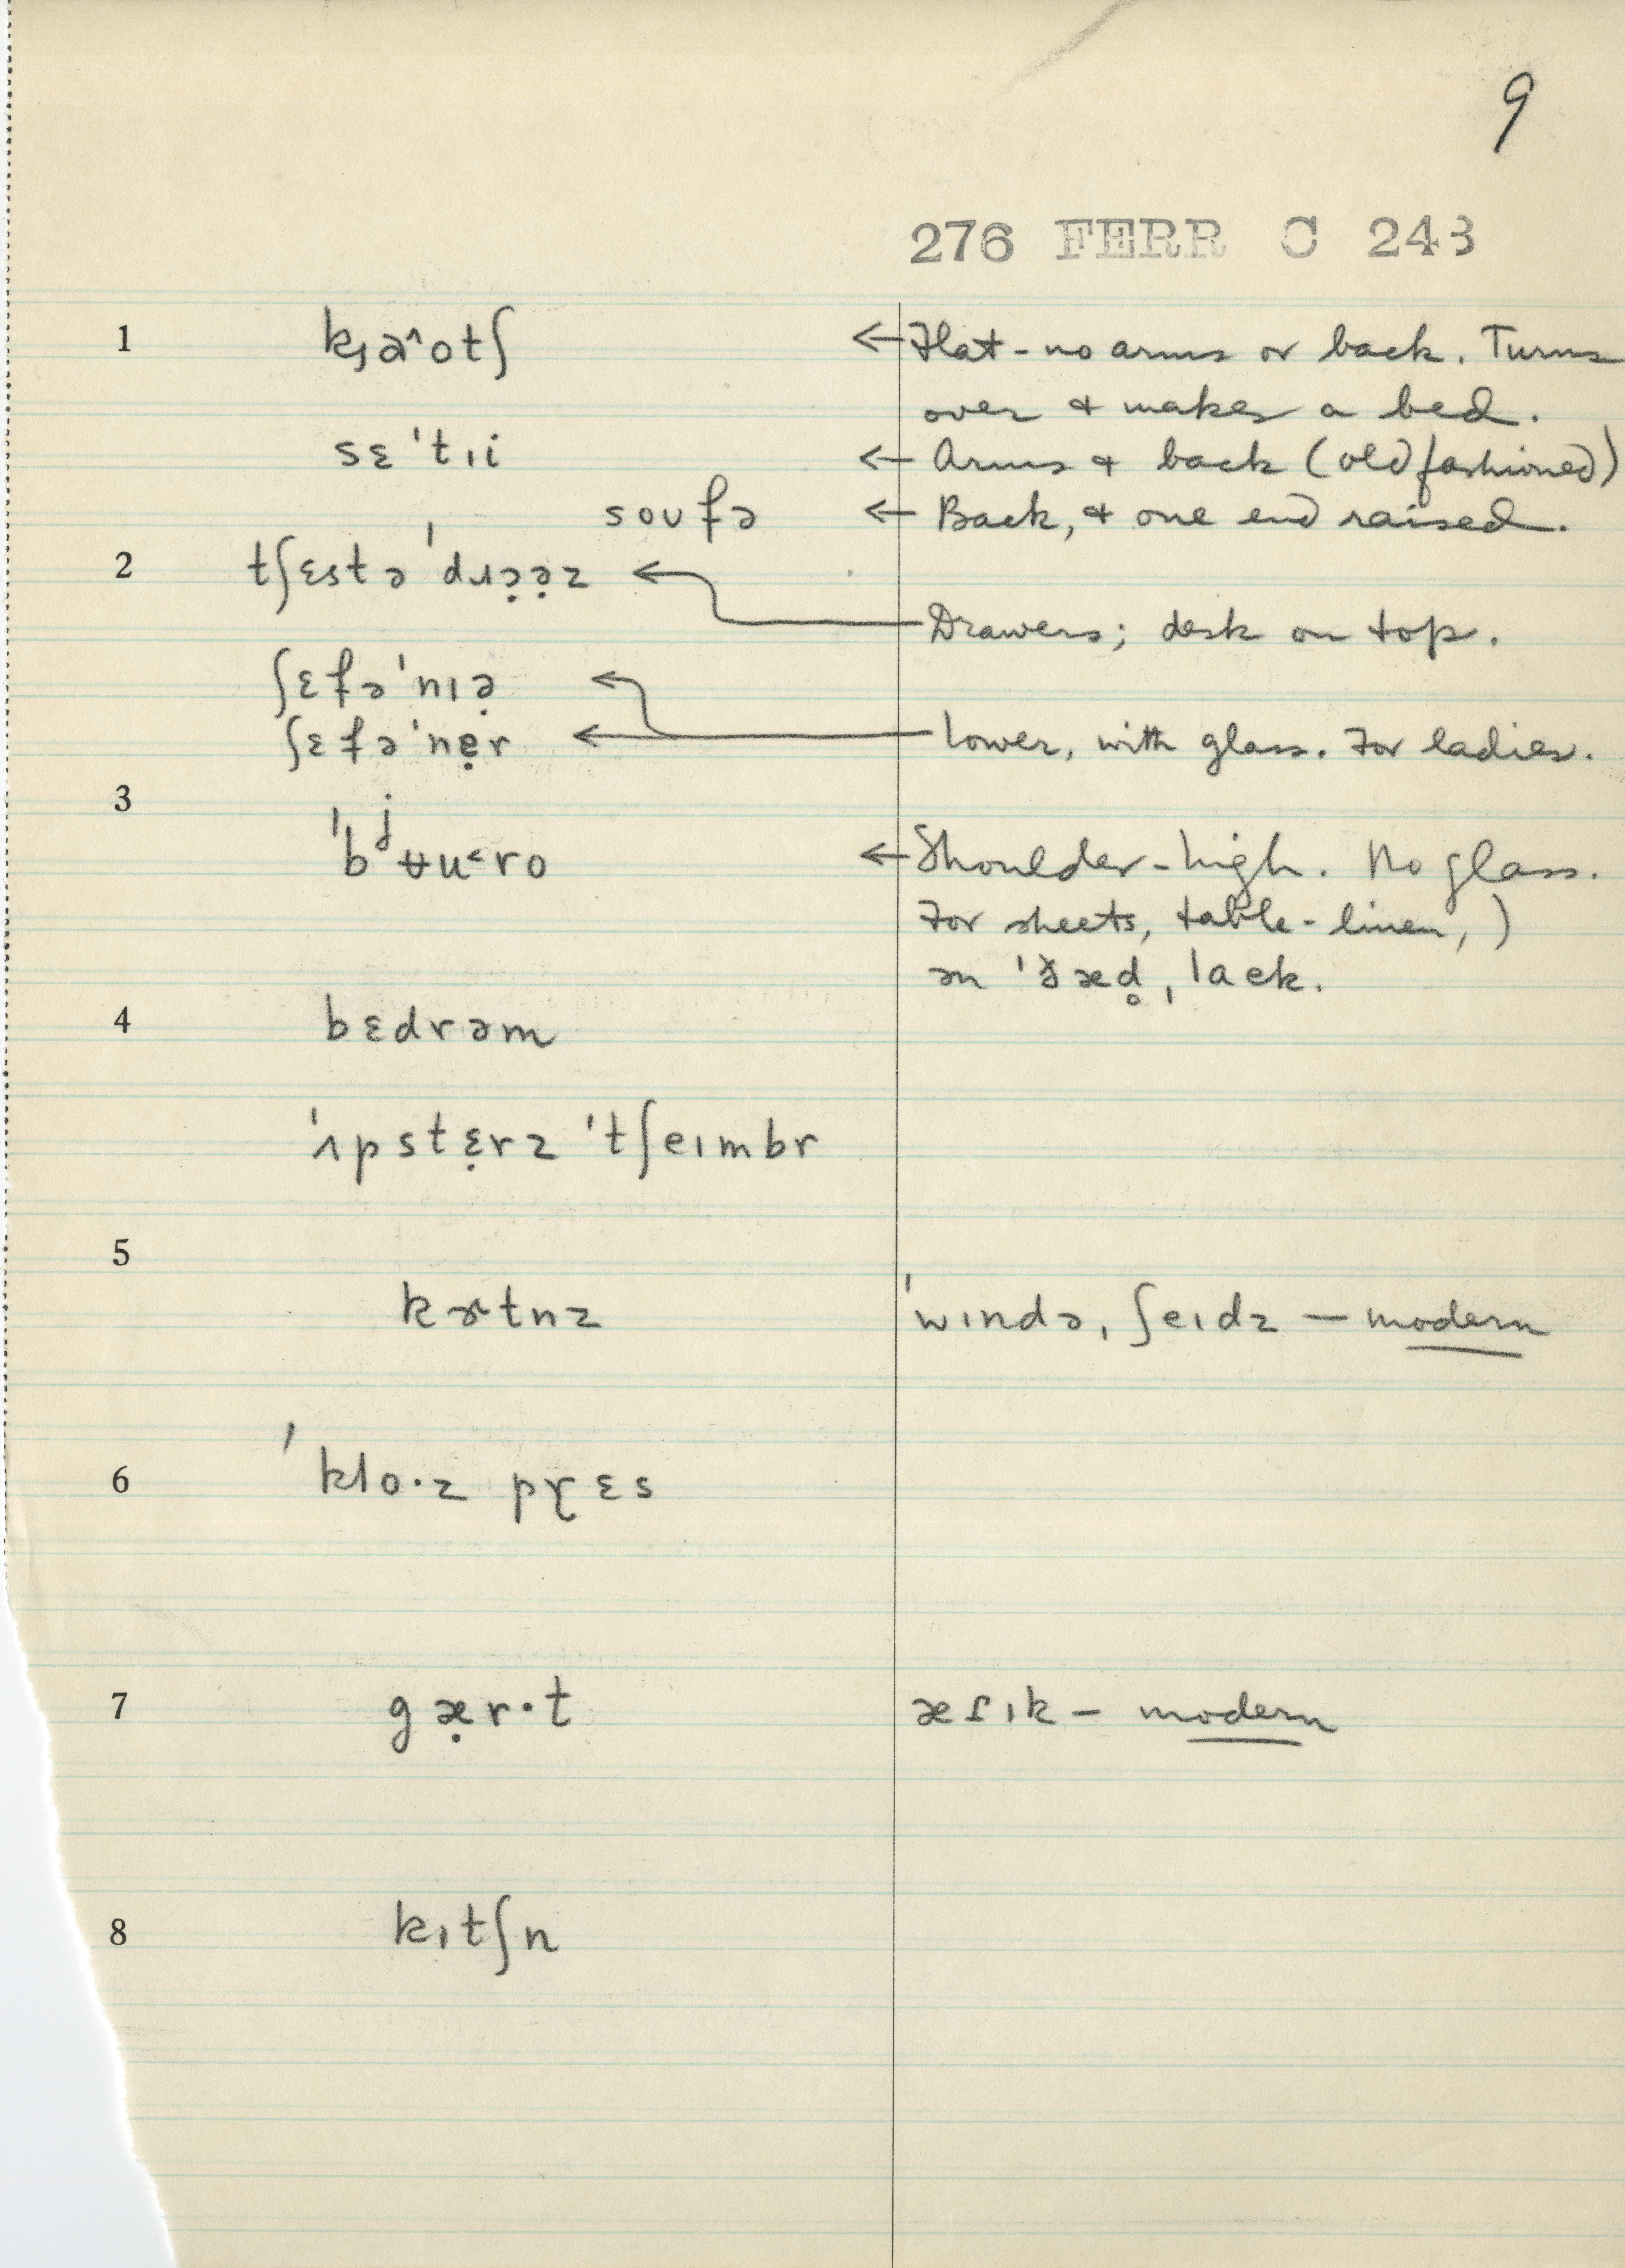 9
276 FERR C 243
1 ← Flat - no arms or back. Turns
over & makes a bed.
sɛˈtɪi ← Arms & back (old fashioned)
soʊfə ← Back, & one end raised.
2 tʃɛstə ˈdɹɔ̣ə̣z ←
Drawers; desk on top.
ʃɛfəˈnɪə̣ ←
ʃɛfəˈnẹr ← Lower, with glass. For ladies.
3 ˈbʲʉu˂ro ← Shoulder-high. No glass.
For sheets, table-linen, )
ən ˈðæd̥, lack.
4 bɛdrəm
ˈʌpstɛ̣rz ˈtʃeɪmbr
5
kɚtnz ˈwɪndə, ʃeɪdz — modern
6 ˈkloˑz prɛs
7 gæ̣rˑt æɾɪk — modern
8 kɪtʃn